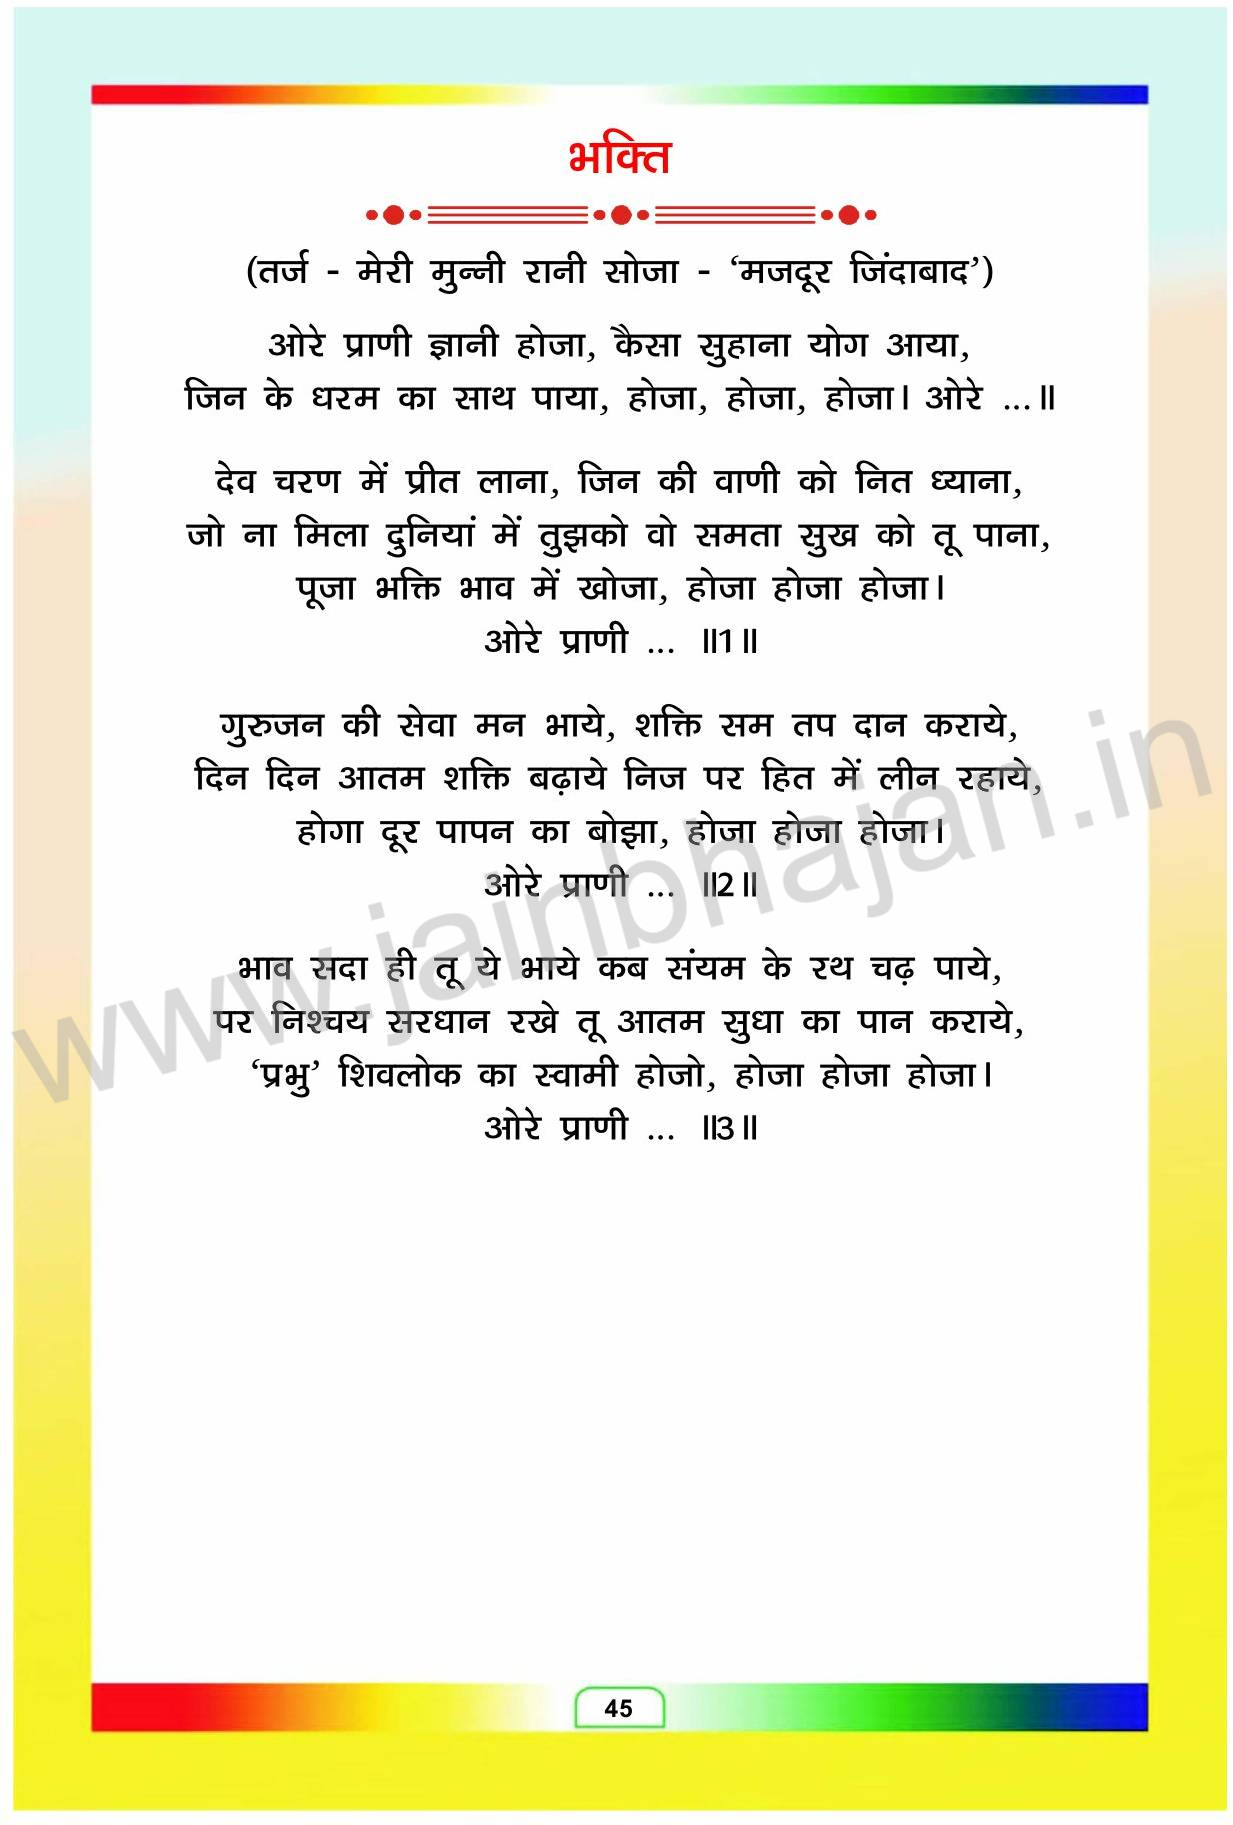 भक्ति
(तर्ज - मेरी मुन्नी रानी सोजा - ‘मजदूर जिंदाबाद’)
ओरे प्राणी ज्ञानी होजा, कैसा सुहाना योग आया,
जिन के धरम का साथ पाया, होजा, होजा, होजा। ओरे ...॥
देव चरण में प्रीत लाना, जिन की वाणी को नित ध्याना,
जो ना मिला दुनियां में तुझको वो समता सुख को तू पाना,
पूजा भक्ति भाव में खोजा, होजा होजा होजा।
ओरे प्राणी ... ॥1॥
गुरुजन की सेवा मन भाये, शक्ति सम तप दान कराये,
दिन दिन आतम शक्ति बढ़ाये निज पर हित में लीन रहाये,
होगा दूर पापन का बोझा, होजा होजा होजा।
ओरे प्राणी ... ॥2॥
भाव सदा ही तू ये भाये कब संयम के रथ चढ़ पाये,
पर निश्चय सरधान रखे तू आतम सुधा का पान कराये,
‘प्रभु’ शिवलोक का स्वामी होजो, होजा होजा होजा।
ओरे प्राणी ... ॥3॥
www.jainbhajan.in
45